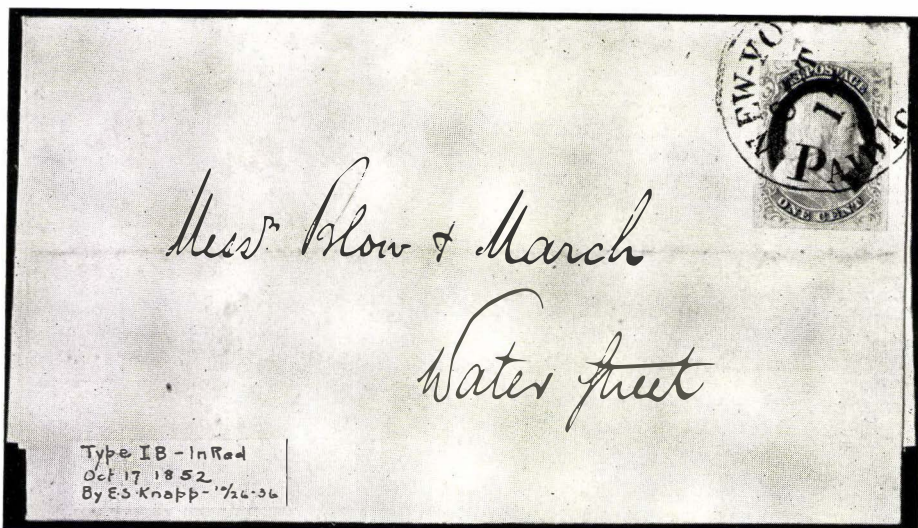 NEW-YO
1
PAID 1c
U.S. POSTAGE
ONE CENT
Messrs Blow & March
Water Street
Type IB - In Red
Oct 17 1852
By E.S. Knapp - 10/26-36